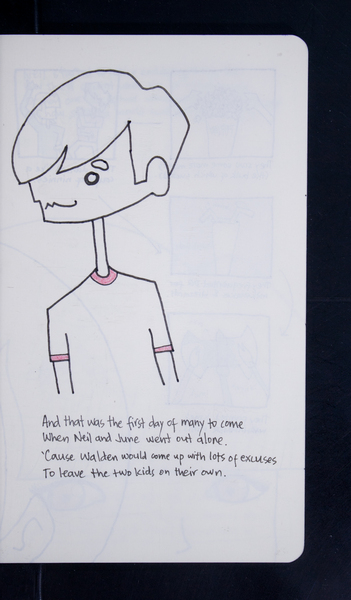 And that was the first day of many to come
When Neil and June went out alone.
'Cause Walden would come up with lots of excuses
To leave the two kids on their own.